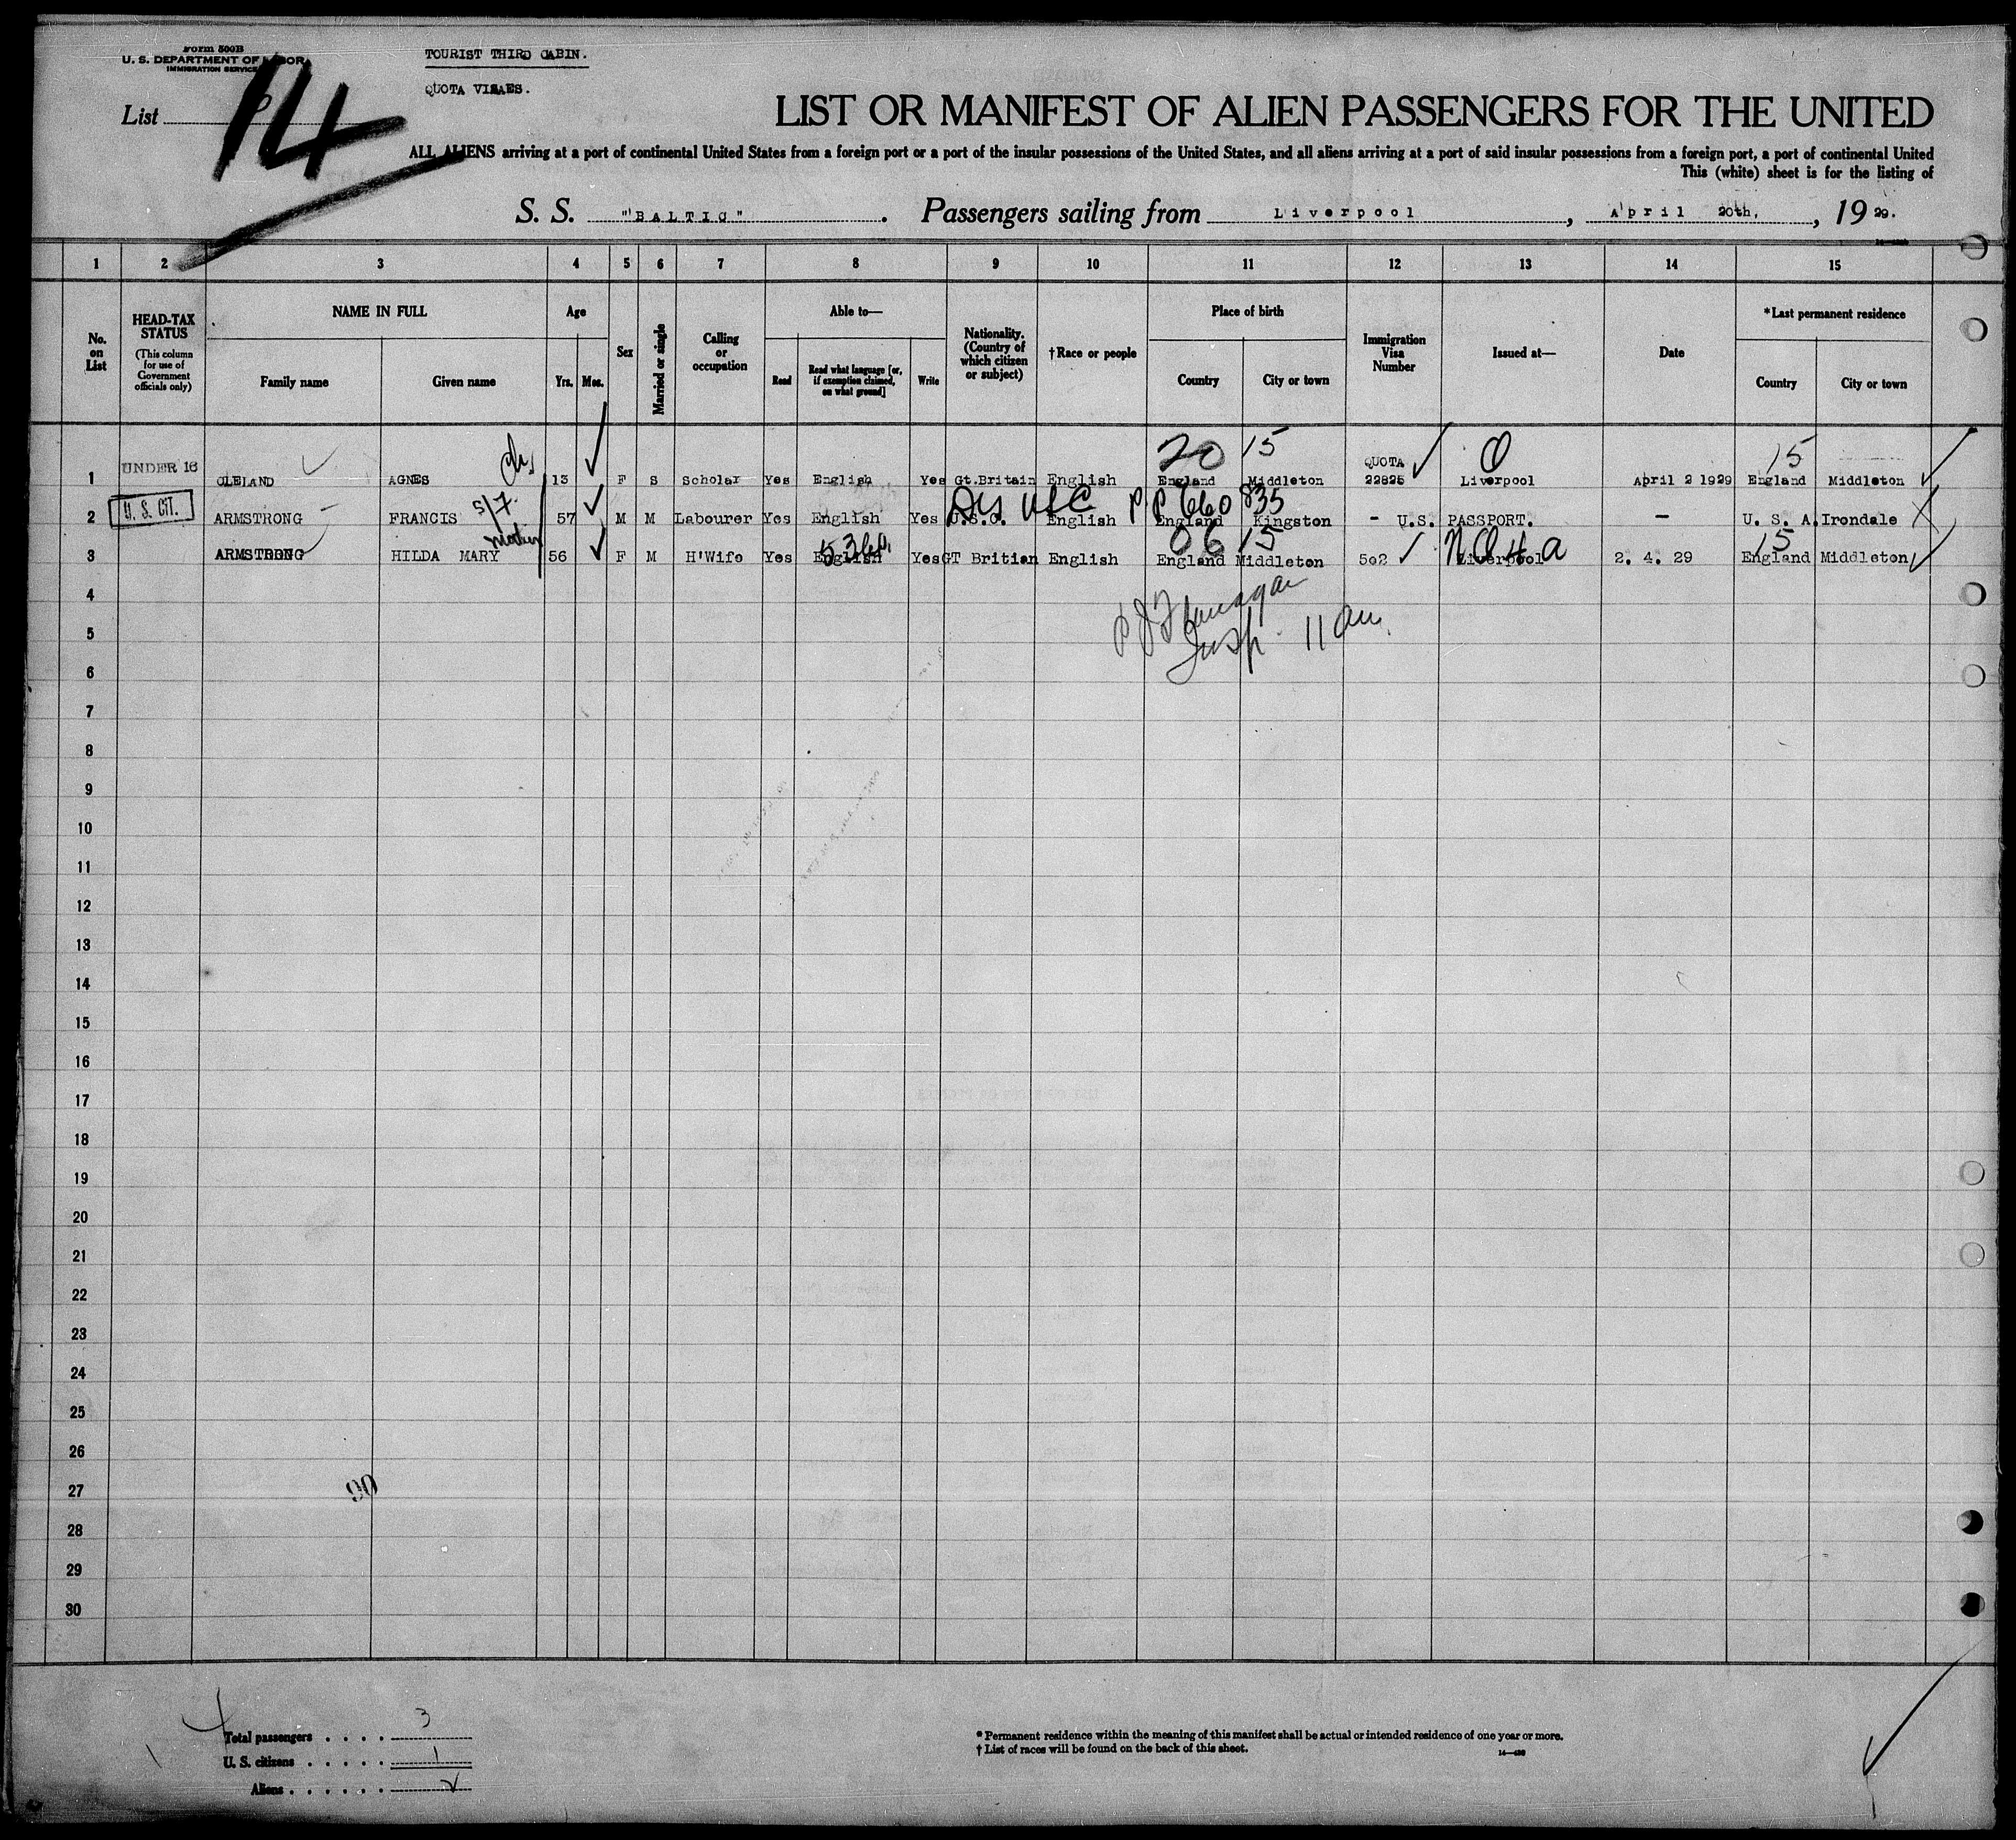 Form 500B
U. S. DEPARTMENT OF LABOR
IMMIGRATION SERVICE
TOURIST THIRD CABIN.
QUOTA VISAES.
List 14
LIST OR MANIFEST OF ALIEN PASSENGERS FOR THE UNITED
ALL ALIENS arriving at a port of continental United States from a foreign port or a port of the insular possessions of the United States, and all aliens arriving at a port of said insular possessions from a foreign port, a port of continental United
This (white) sheet is for the listing of
S. S. "BALTIC". Passengers sailing from Liverpool, April 20th, 19 29.
1 2 3 4 5 6 7 8 9 10 11 12 13 14 15
No. on List
HEAD-TAX STATUS
(This column for use of Government officials only)
NAME IN FULL
Family name Given name
Age
Yrs. Mos.
Sex
Married or single
Calling or occupation
Able to—
Read Read what language [or, if exemption claimed, on what ground] Write
Nationality. (Country of which citizen or subject)
†Race or people
Place of birth
Country City or town
Immigration Visa Number
Issued at—
Date
*Last permanent residence
Country City or town
20 15 15
1 UNDER 16 CLELAND AGNES 13 F S Scholar Yes English Yes Gt.Britain English England Middleton QUOTA 22825 Liverpool April 2 1929 England Middleton
5/7. USC PP 660835
2 U. S. CIT. ARMSTRONG FRANCIS 57 M M Labourer Yes English Yes U.S.C. English England Kingston - U.S. PASSPORT. — U. S. A. Irondale
mother 06 15 15
3 ARMSTRONG HILDA MARY 56 F M H'Wife Yes English Yes GT Britian English England Middleton 502 Liverpool 2. 4. 29 England Middleton
4
5
Insp. 11 am
6
7
8
9
10
11
12
13
14
15
16
17
18
19
20
21
22
23
24
25
26
27
28
29
30
Total passengers . . . . 3
U. S. citizens . . . . . 1
Aliens . . . . . . 2
* Permanent residence within the meaning of this manifest shall be actual or intended residence of one year or more.
† List of races will be found on the back of this sheet.